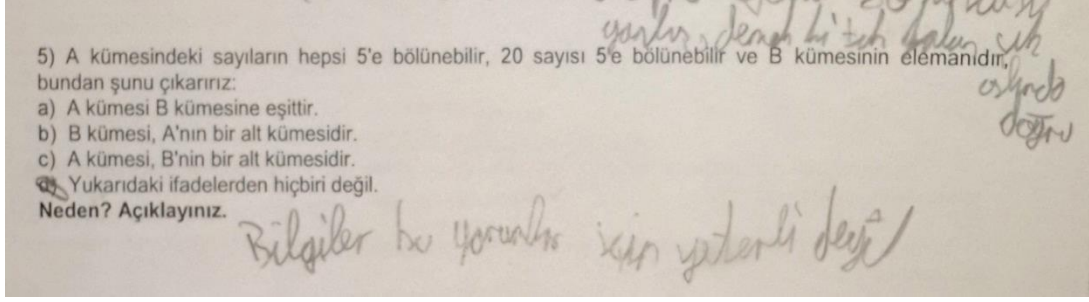 yanlış, demek ki tek kalan şık
5) A kümesindeki sayıların hepsi 5'e bölünebilir, 20 sayısı 5'e bölünebilir ve B kümesinin elemanıdır,
aslında
bundan şunu çıkarırız:
doğru
a) A kümesi B kümesine eşittir.
b) B kümesi, A'nın bir alt kümesidir.
c) A kümesi, B'nin bir alt kümesidir.
d) Yukarıdaki ifadelerden hiçbiri değil.
Neden? Açıklayınız.
Bilgiler bu yorumlar için yeterli değil